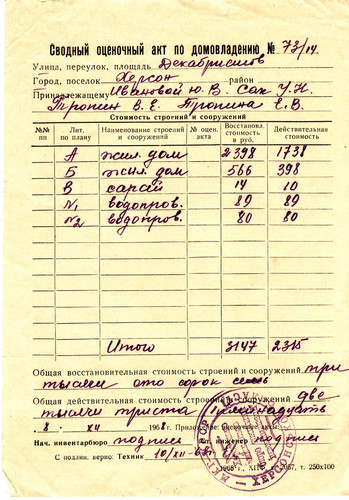 Сводный оценочный акт по домовладению № 73/14.
Улица, переулок, площадь Декабристов
Город, поселок Херсон район
Принадлежащему Ивановой Ю. В. Сах У. Н.
Тропин В. Е. Тропина Е. В.
Стоимость строений и сооружений
№№ пп Лит. по плану Наименование строений и сооружений № оцен. акта Восстановл. стоимость в руб. Действительная стоимость
А жил. дом 2398 1738
Б жил. дом 566 398
В сарай 14 10
N1 водопров. 89 89
N2 водопров. 80 80
Итого 3147 2315
Общая восстановительная стоимость строений и сооружений три
тысячи сто сорок семь
Общая действительная стоимость строений и сооружений две
тысячи триста пятнадцать
8 · XII 1968 г. Приложение: Оценочные акты:
Нач. инвентарбюро подпись инженер подпись
С подлин. верно: Техник 10/XII-68
1968 г., 2087, т. 250х100